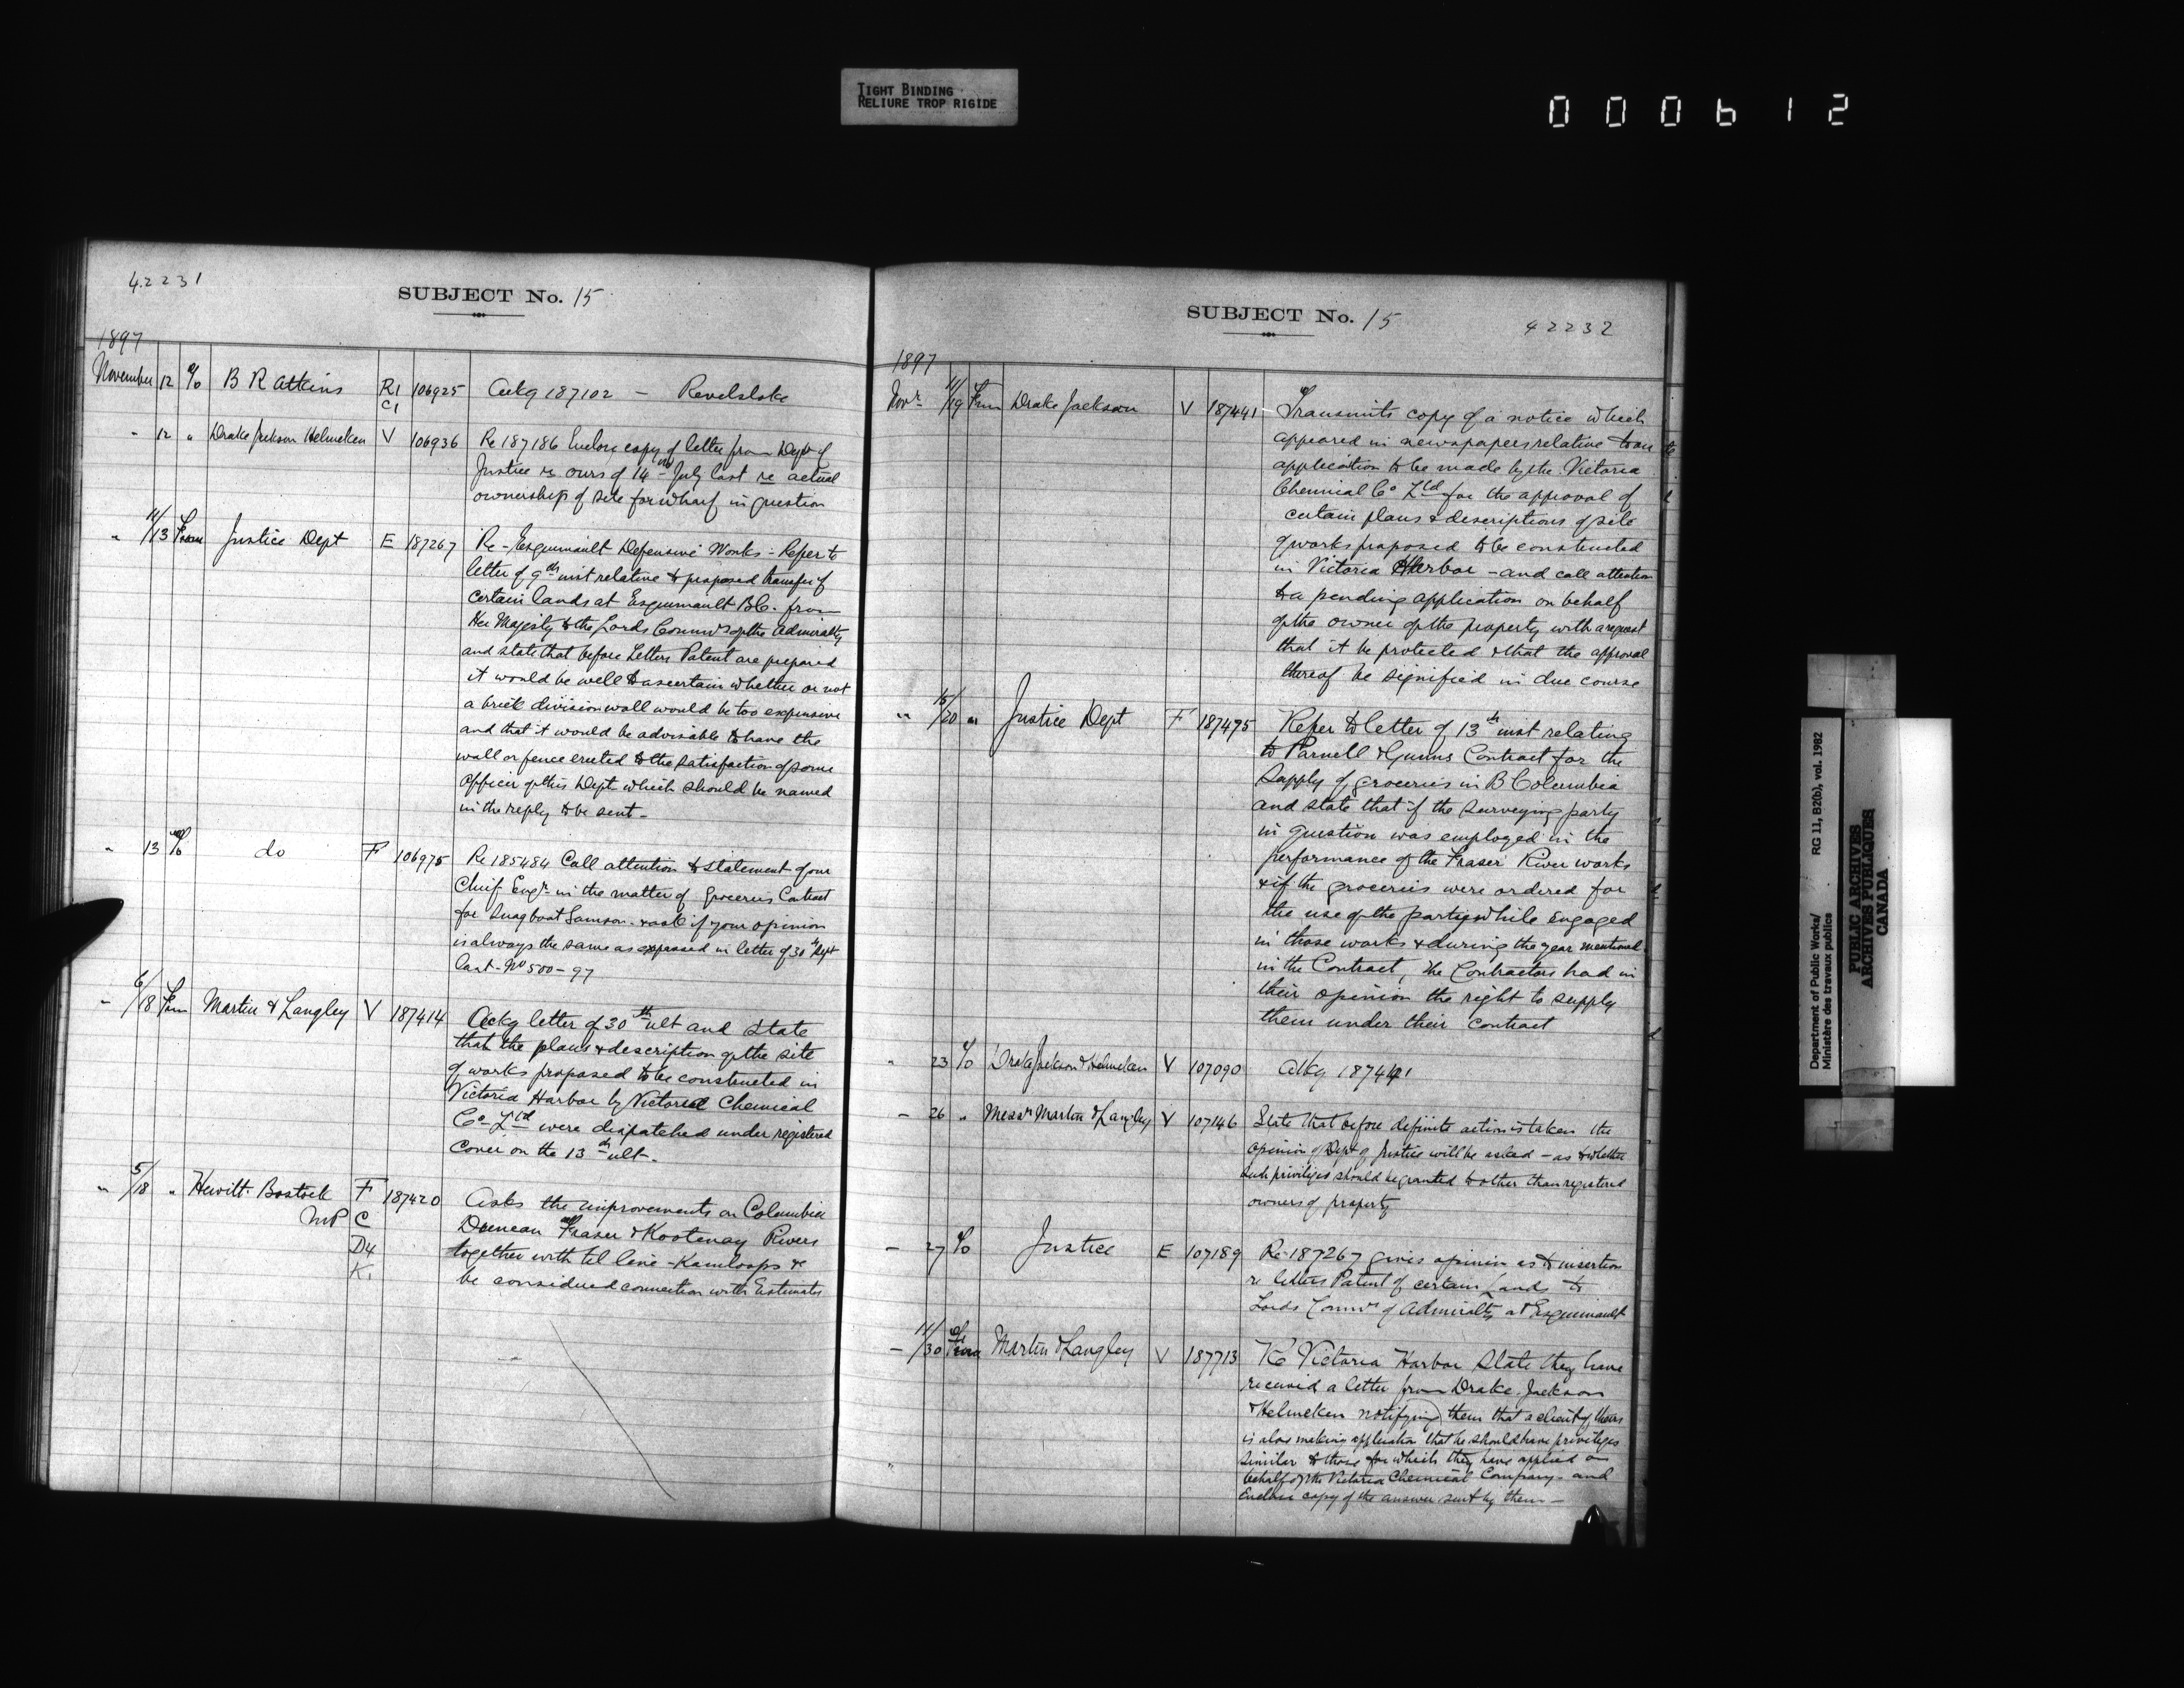 TIGHT BINDING
RELIURE TROP RIGIDE
000612
42231
SUBJECT No. 15
1897
November 12 % B R Atkins R1 106925 Ackg 187102 — Revelstoke
C1
" 12 " Drake Jackson Helmcken V 106936 Re 187186 Enclose copy of letter from Dept of
Justice re ours of 14th July last re actual
ownership of site for wharf in question
" 11/13 From Justice Dept E 187267 Re - Esquimault Defensive Works - Refer to
letter of 9th inst relative to proposed transfer of
certain lands at Esquimault B.C. from
Her Majesty to the Lords Commrs of the Admiralty
and state that before Letters Patent are prepared
it would be well to ascertain whether or not
a brick division wall would be too expensive
and that it would be advisable to have the
wall or fence erected to the satisfaction of some
Officer of this Dept which should be named
in the reply to be sent -
" 13 % do F 106975 Re 185484 Call attention to statement of our
Chief Engr in the matter of Groceries Contract
for Snagboat Samson - & ask if your opinion
is always the same as expressed in letter of 30th Sept
last - No 500 - 97
" 6/18 From Martin & Langley V 187414 Ackg letter of 30th ult and state
that the plans & description of the site
of works proposed to be constructed in
Victoria Harbor by Victoria Chemical
Co Ltd were dispatched under registered
cover on the 13th ult -
" 5/18 " Hewitt Bostock F 187420 Asks the improvements on Columbia
MP C Duncan Fraser & Kootenay Rivers
D4 together with tel line - Kamloops &
K1 be considered connection with Estimates
SUBJECT No. 15
42232
1897
Novr 11/19 From Drake Jackson V 187441 Transmits copy of a notice which
appeared in newspapers relative to an
application to be made by the Victoria
Chemical Co Ltd for the approval of
certain plans & descriptions of site
of works proposed to be constructed
in Victoria Harbor - and call attention
to a pending application on behalf
of the owner of the property with a request
that it be protected & that the approval
thereof be signified in due course
" 15/20 " Justice Dept F 187475 Refer to letter of 13th inst relating
to Parnell & Gunns Contract for the
Supply of groceries in B Columbia
and state that if the surveying party
in question was employed in the
performance of the Fraser River works
& if the groceries were ordered for
the use of the party while engaged
in those works & during the year mentioned
in the Contract, the Contractors had in
their opinion the right to supply
them under their contract
" 23 % Drake Jackson & Helmcken V 107090 Ackg 187441
- 26 " Messrs Martin & Langley V 107146 State that before definite action is taken the
opinion of Dept of Justice will be asked - as to whether
such privileges should be granted to other than registered
owners of property
- 27 % Justice E 107189 Re 187267 gives opinion as to insertion
re letters Patent of certain Lands to
Lords Commrs of Admiralty at Esquimault
- 11/30 From Martin & Langley V 187713 Re Victoria Harbor State they have
received a letter from Drake Jackson
& Helmcken notifying them that a client of theirs
is also making application that he should have privileges
similar to those for which they have applied on
behalf of the Victoria Chemical Company - and
Enclose copy of the answer sent by them -
Department of Public Works/
Ministère des travaux publics
RG 11, B2(b), vol. 1982
PUBLIC ARCHIVES
ARCHIVES PUBLIQUES
CANADA